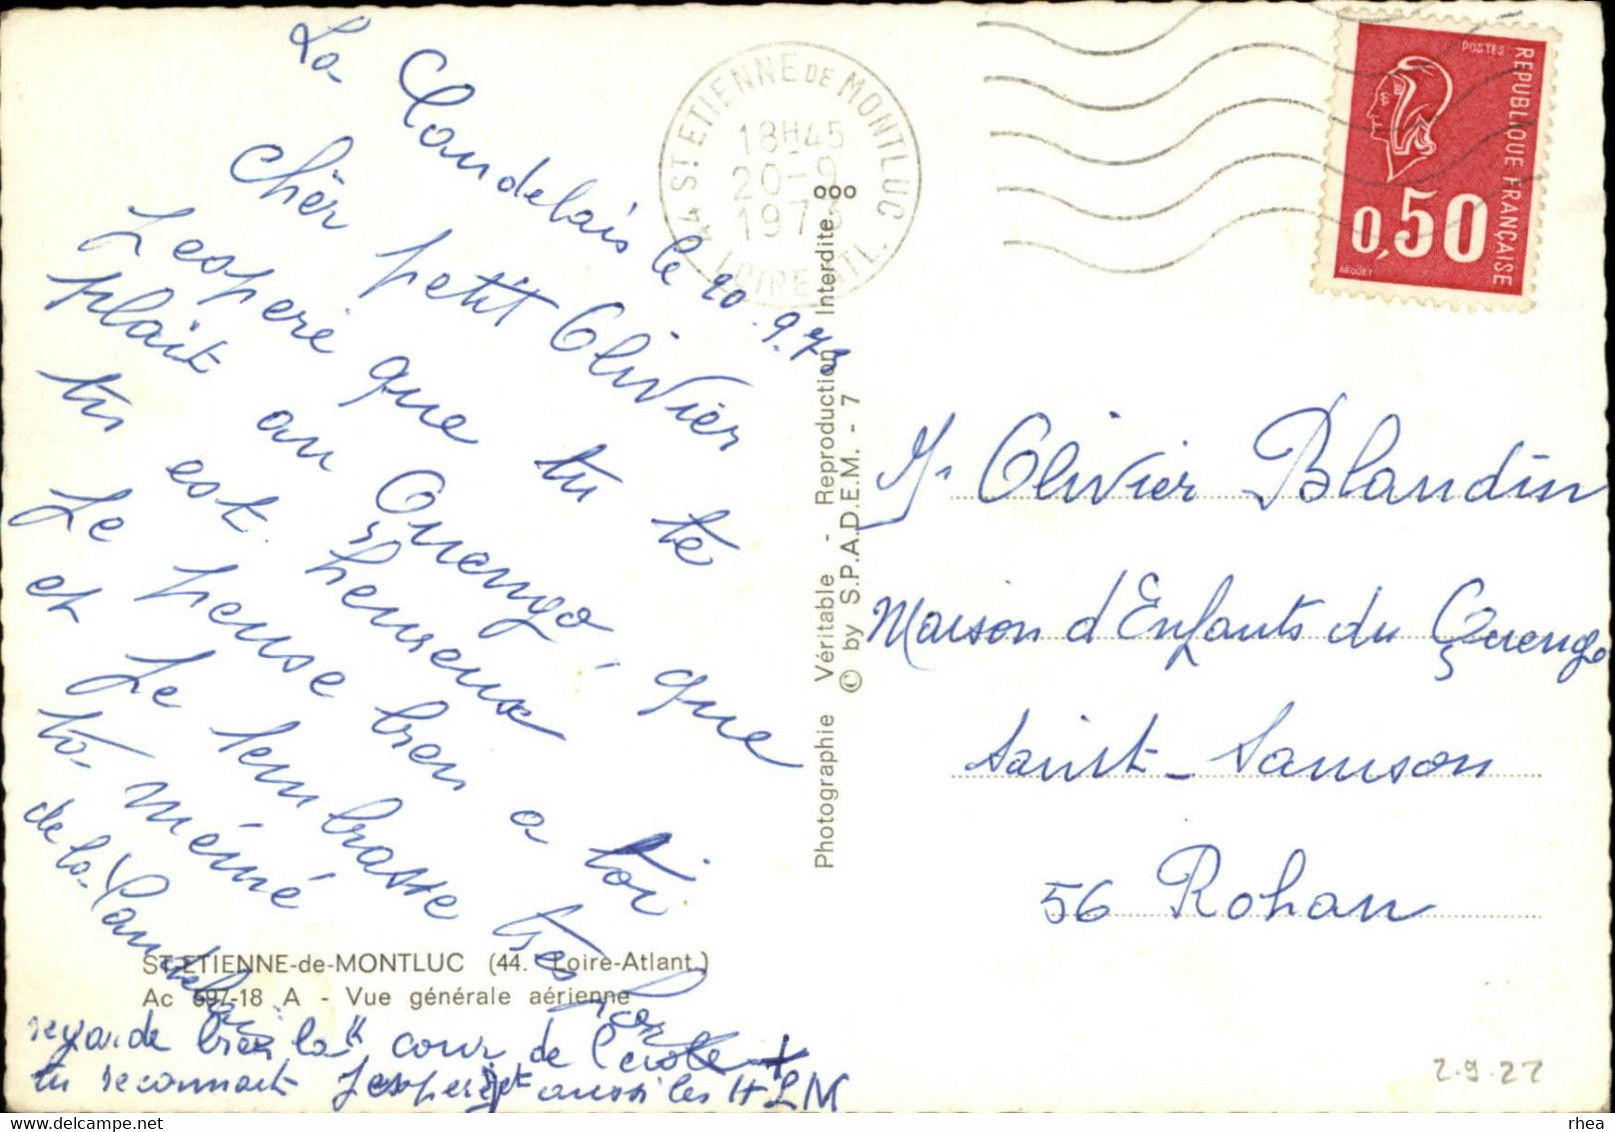 La Caudelais le 20.9.73
Chèr petit Olivier
J'esperé que tu te
plait au Quengo, que
tu est heureux
Je pense bien a toi
et Je tembrasse très fort
ta mémé
de la Caudelais
regarde bien la cour de l'ecole +
tu reconnait J'esperé et aussi les HLM
ST-ETIENNE-de-MONTLUC (44. Loire-Atlant.)
Ac 597-18 A - Vue générale aérienne
Photographie Véritable - Reproduction Interdite
© by S.P.A.D.E.M. - 7
44 ST ETIENNE DE MONTLUC
18H45
20-9
1973
LOIRE ATL.
POSTES
REPUBLIQUE FRANÇAISE
0,50
Mr Olivier Blandin
Maison d'Enfants du Quengo
Saint-Samson
56 Rohan
2.9.22
www.delcampe.net
rhea